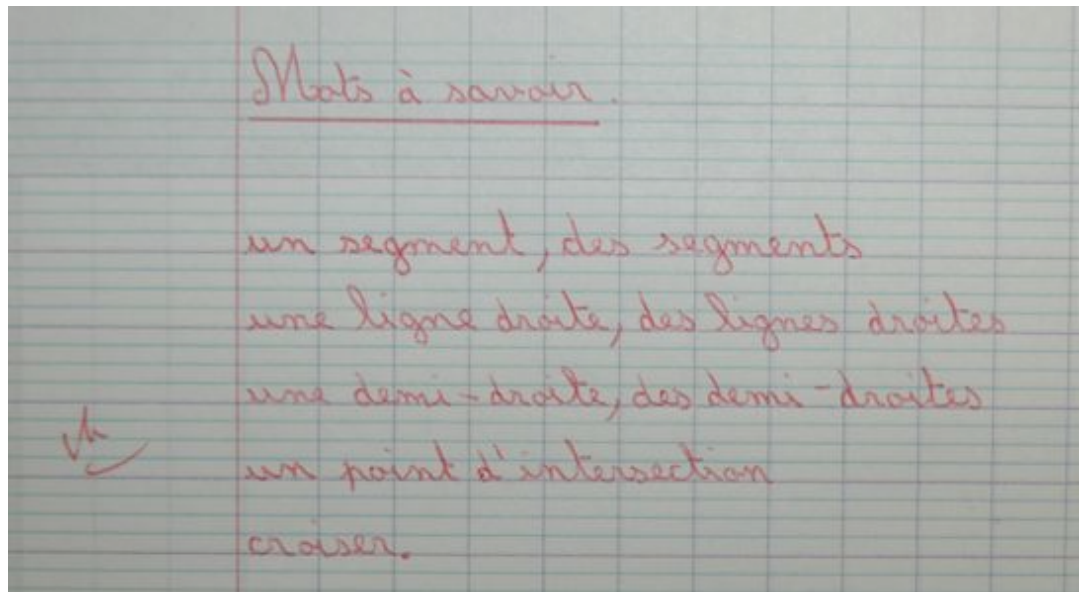 Mots à savoir.
un segment, des segments
une ligne droite, des lignes droites
une demi-droite, des demi-droites
un point d'intersection
croiser.